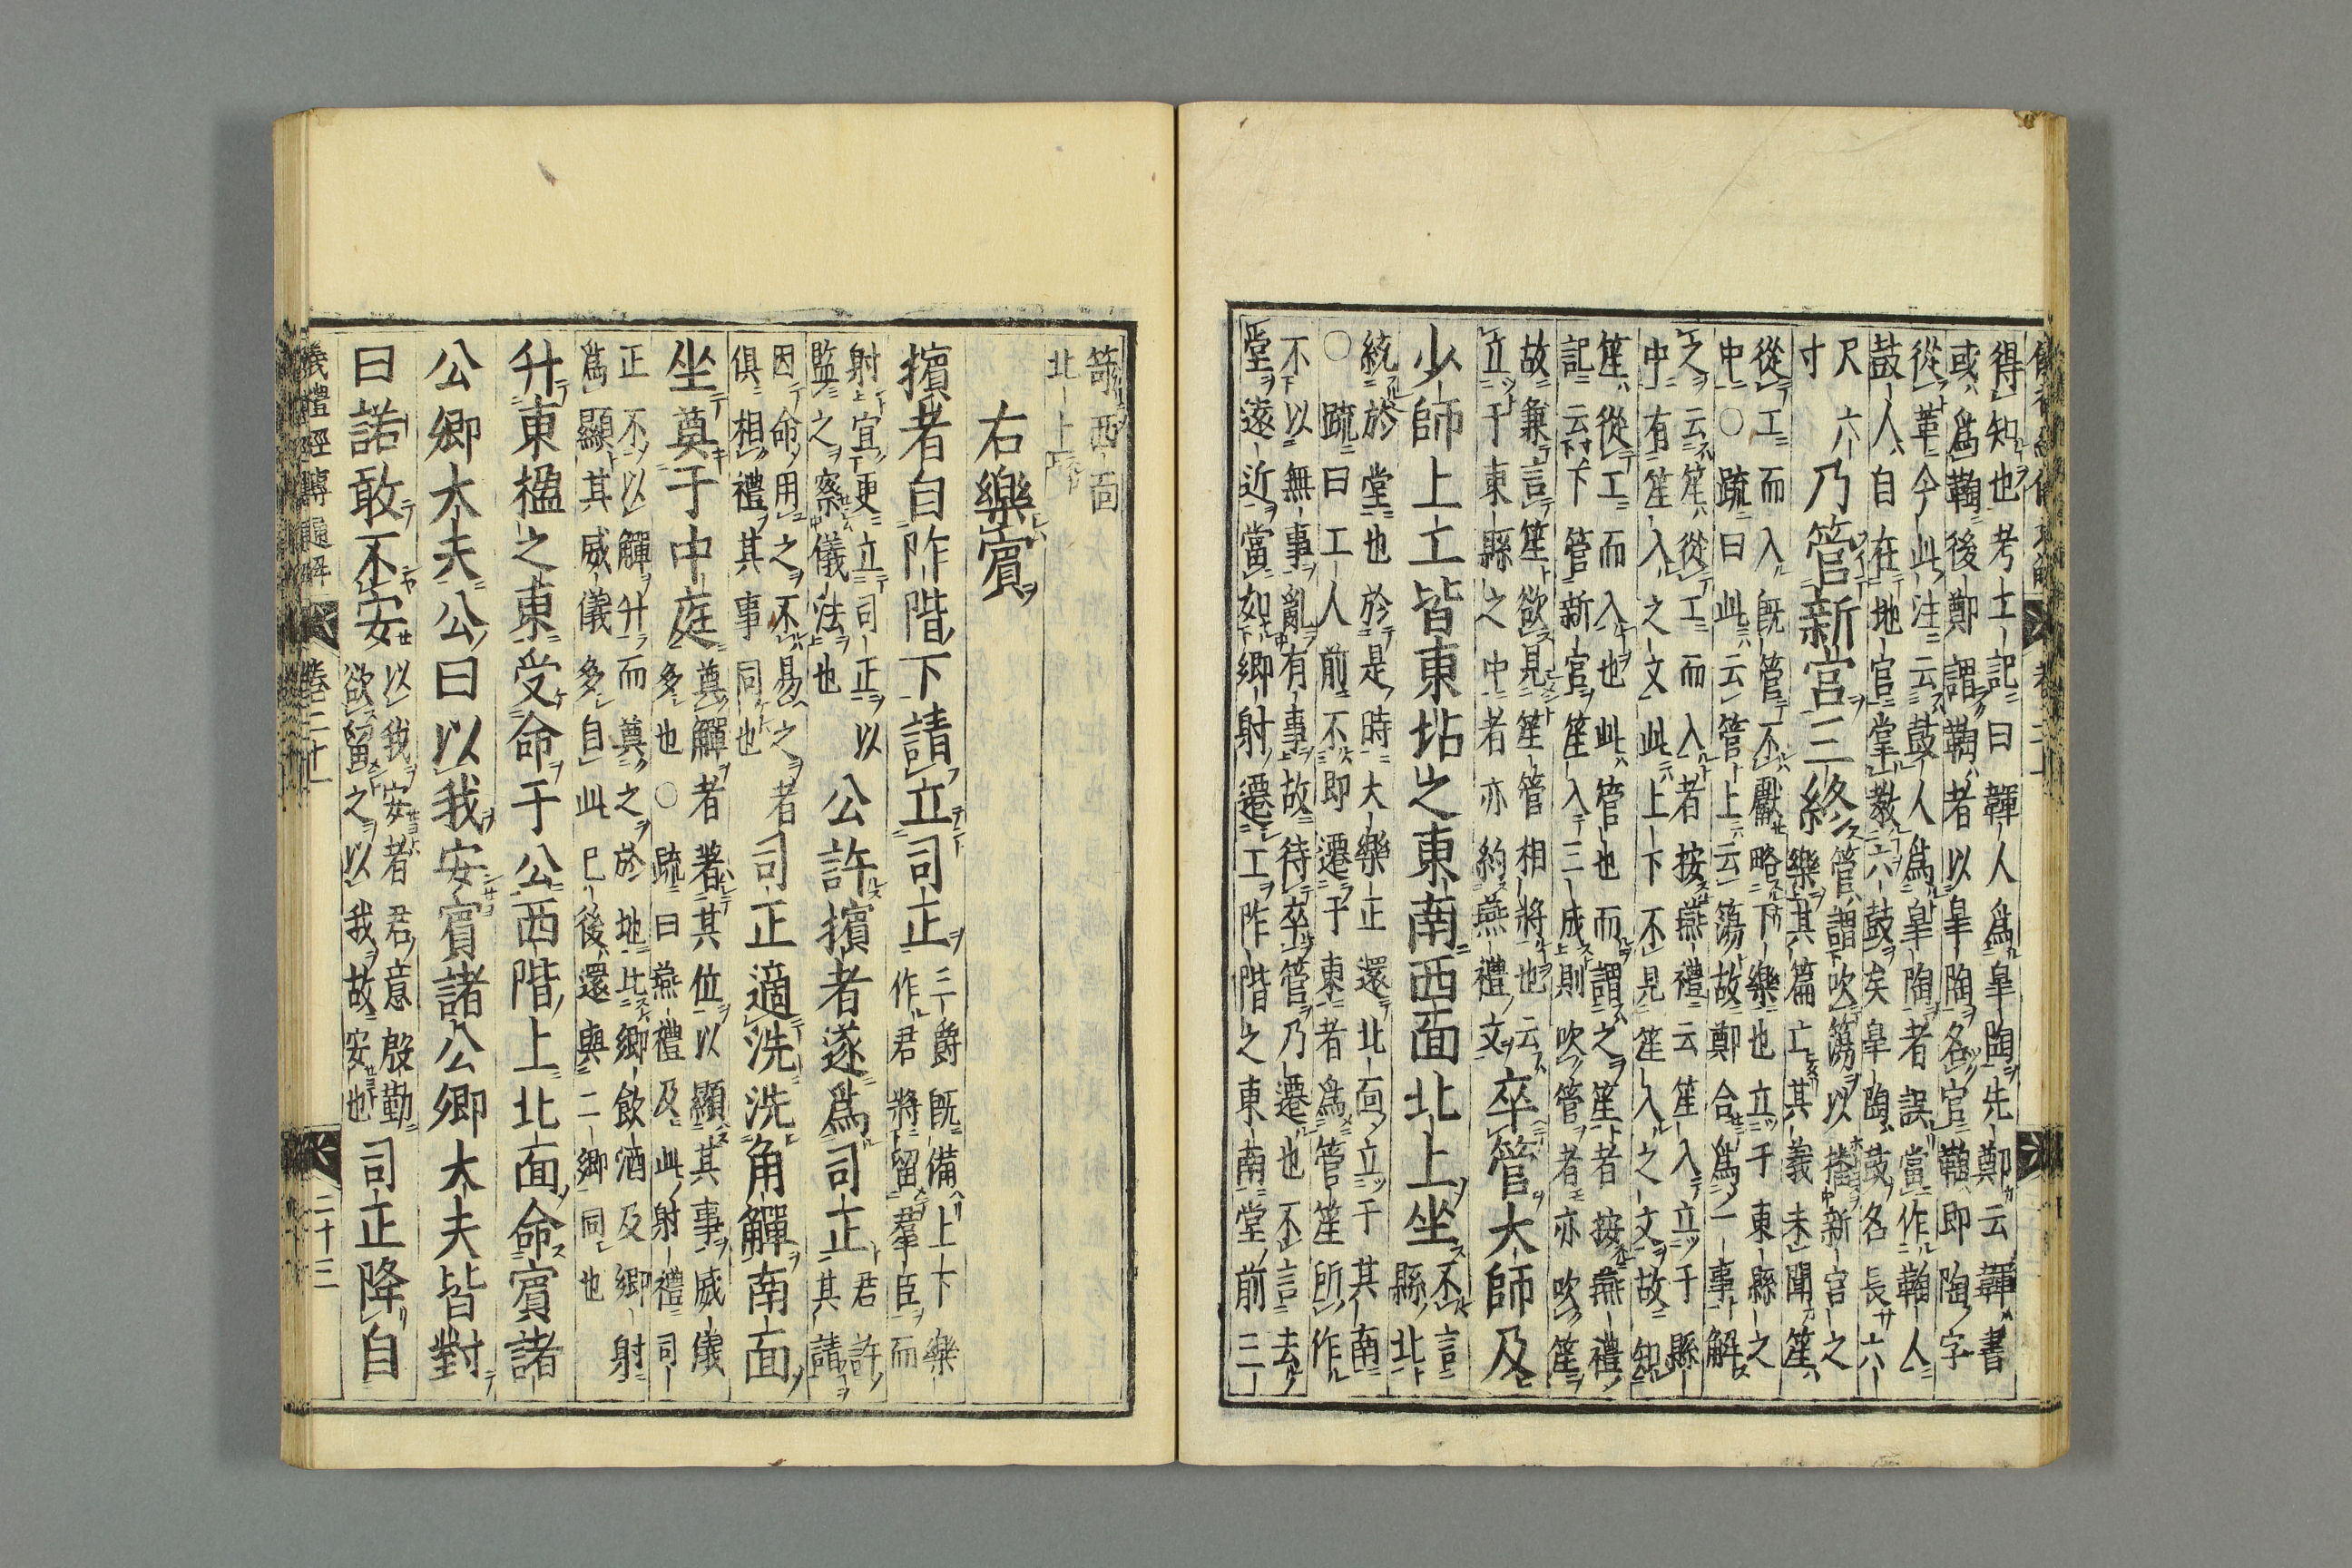 得知也考工記曰韗人爲皐陶先鄭云韗書
或爲鞠後鄭謂鞠者以皐陶名官鞠即陶字
從革今此注云鼓人爲皐陶者誤當作鞠人
鼓人自在地官掌教六鼓矣皐陶鼓名長六
尺六
寸
乃管新宮三終
管謂吹簜以播新宮之
樂其篇亡其義未聞笙
從工而入既管不獻略下樂也立于東縣之
中○疏曰此云管上云簜故鄭合爲一事解
之云笙從工而入者按燕禮云笙入立于縣
中有笙入之文此上下不見笙入之文故知
笙從工而入也此管也而謂之笙者按燕禮
記云下管新宮笙入三成則吹管者亦吹笙
故兼言笙欲見笙管相將也云
立于東縣之中者亦約燕禮文
卒管大師及
少師上工皆東坫之東南西面北上坐
不言
縣北
統於堂也於是時大樂正還北面立于其南
○疏曰工人前不即遷于東者爲管笙所作
不以無事亂有事故待卒管乃遷也不言去
堂遠近當如卿射遷工阼階之東南堂前三
笴西面
北上
右樂賓
擯者自阼階下請立司正
三爵既備上下樂
作君將留羣臣而
射宜更立司正以
監之察儀法也
公許擯者遂爲司正
君許
其請
因命用之不易之者
俱相禮其事同也
司正適洗洗角觶南面
坐奠于中庭
奠觶者著其位以顯其事威儀
多也○疏曰燕禮及此射禮司
正不以觶升而奠之於地比卿飲酒及卿射
爲顯其威儀多自此已後還與二卿同也
升東楹之東受命于公西階上北面命賓諸
公卿大夫公曰以我安賓諸公卿大夫皆對
曰諾敢不安
以我安者君意殷勤
欲留之以我故安也
司正降自
儀禮經傳通解 卷二十一 二十三